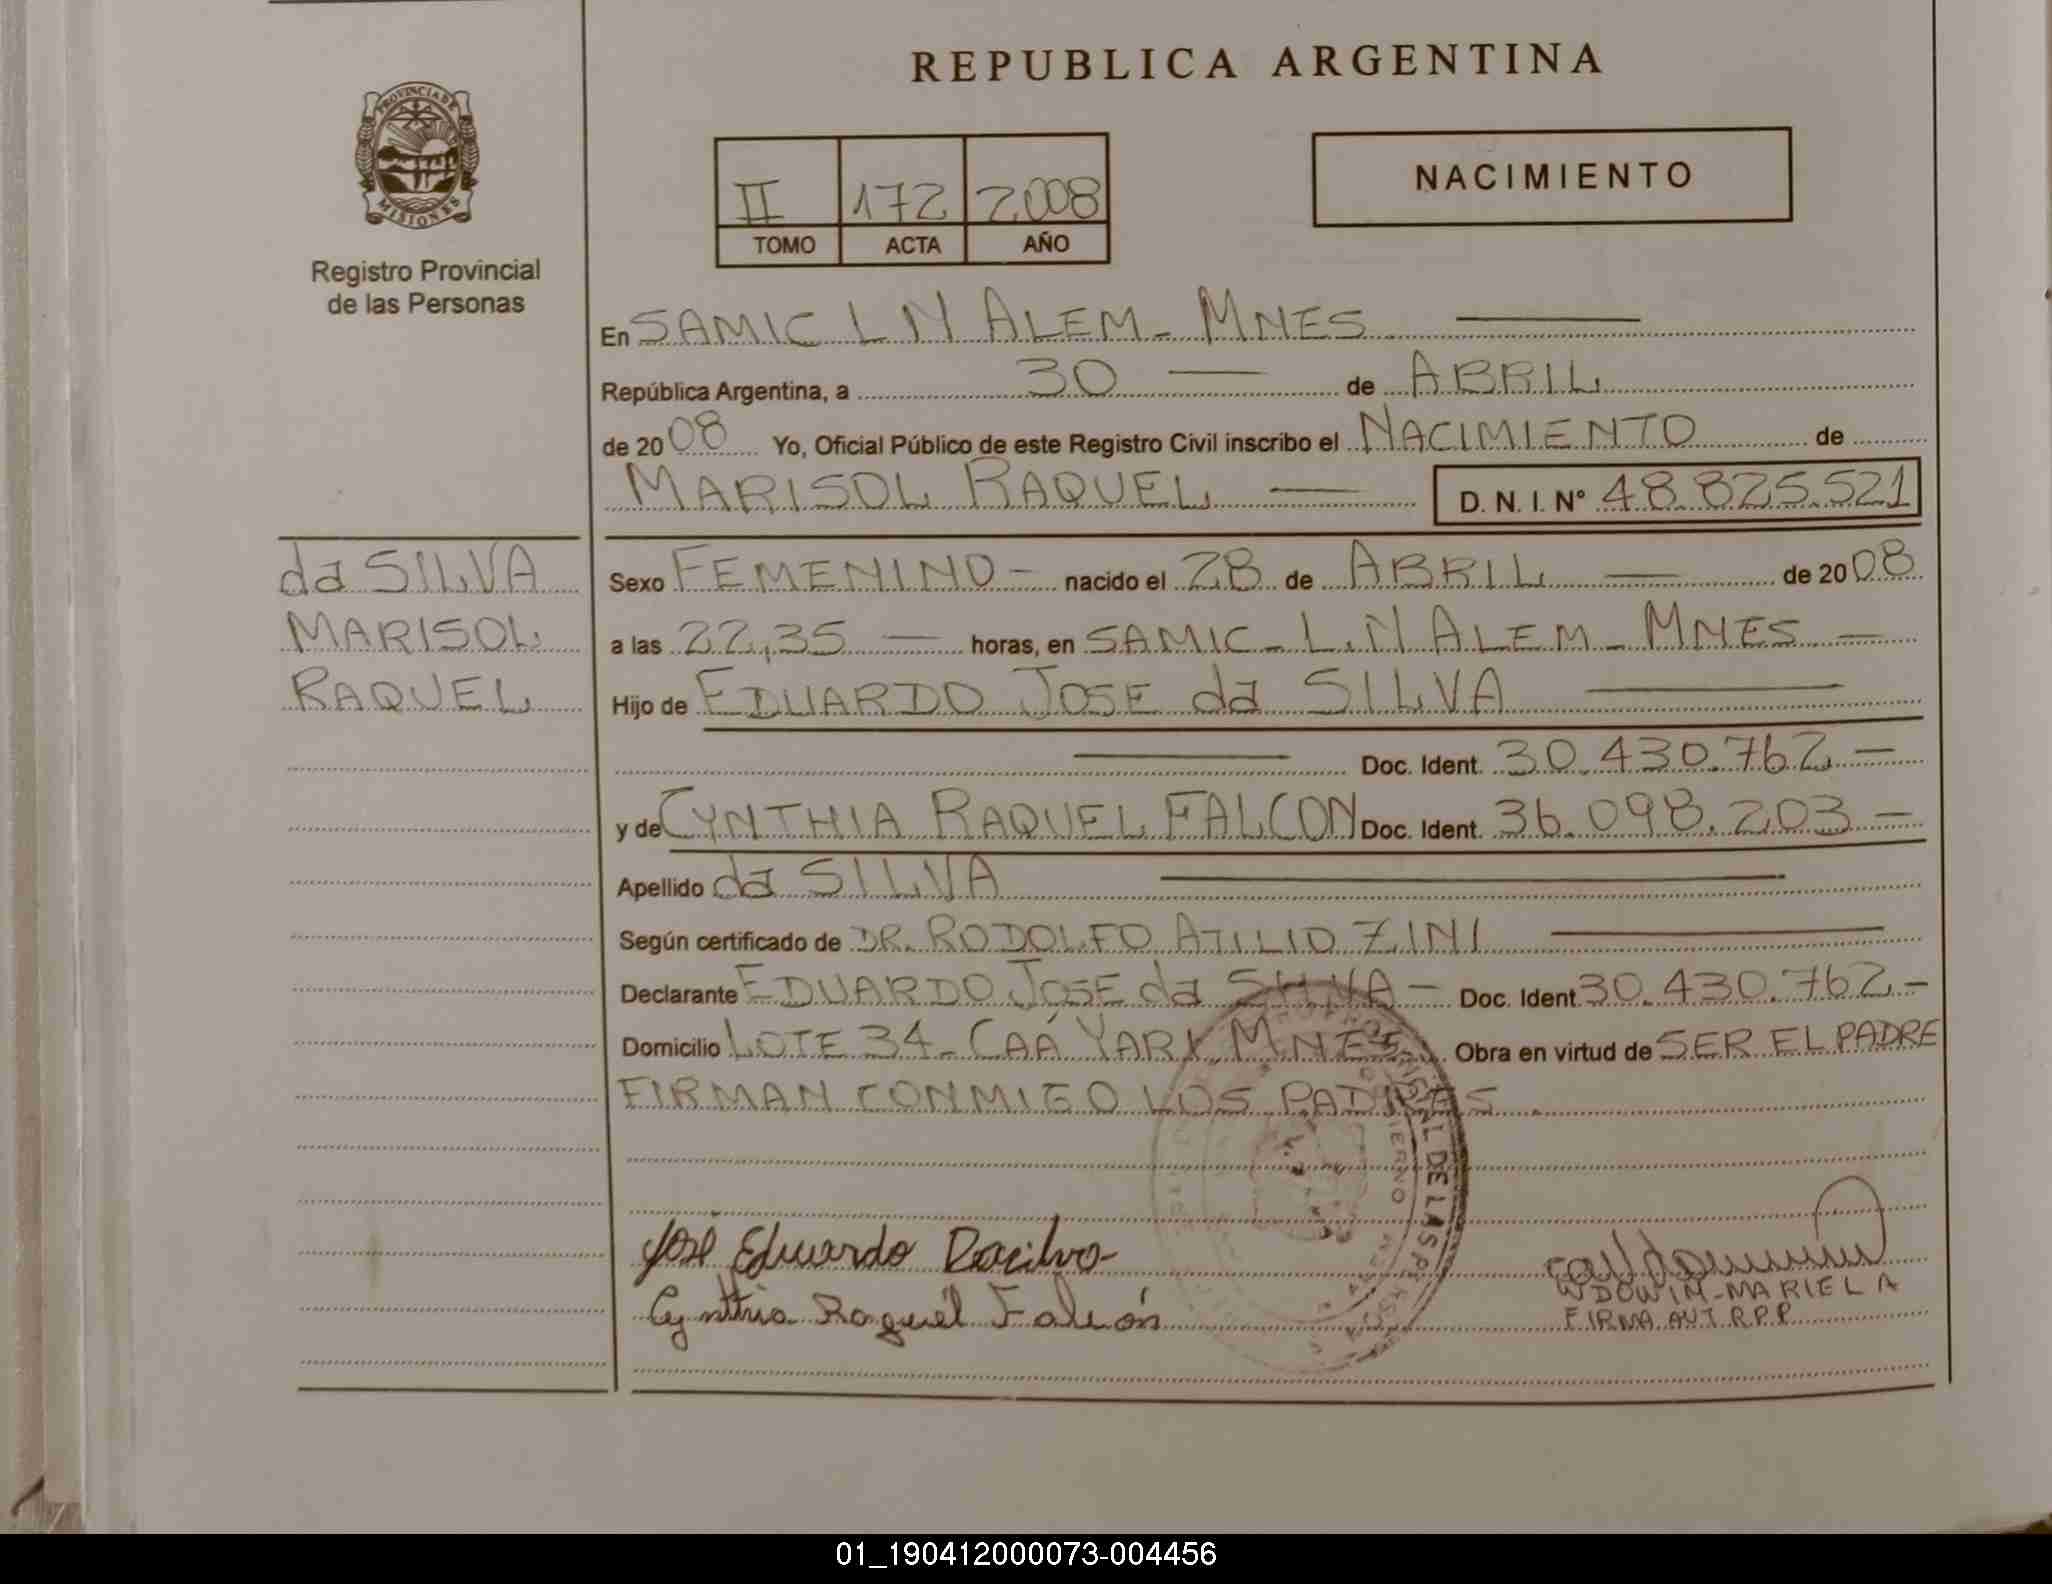 REPUBLICA ARGENTINA
PROVINCIA DE
MISIONES
Registro Provincial
de las Personas
II 172 2008
TOMO ACTA AÑO
NACIMIENTO
En SAMIC L N ALEM - MNES
República Argentina, a 30 de ABRIL
de 2008 Yo, Oficial Público de este Registro Civil inscribo el NACIMIENTO de
MARISOL RAQUEL D. N. I. Nº 48.825.521
da SILVA
MARISOL
RAQUEL
Sexo FEMENINO - nacido el 28 de ABRIL de 2008
a las 22,35 horas, en SAMIC - L.N ALEM - MNES -
Hijo de EDUARDO JOSE da SILVA
Doc. Ident. 30.430.762 -
y de CYNTHIA RAQUEL FALCON Doc. Ident. 36.098.203 -
Apellido da SILVA
Según certificado de DR. RODOLFO ATILIO ZINI
Declarante EDUARDO JOSE da SILVA - Doc. Ident. 30.430.762 -
Domicilio LOTE 34 - CAÁ YARI MNES Obra en virtud de SER EL PADRE
FIRMAN CONMIGO LOS PADRES
José Eduardo Dacilva
Cynthia Raquél Falcón
WDOWIN - MARIELA
FIRMA AUT R.P.P
01_190412000073-004456